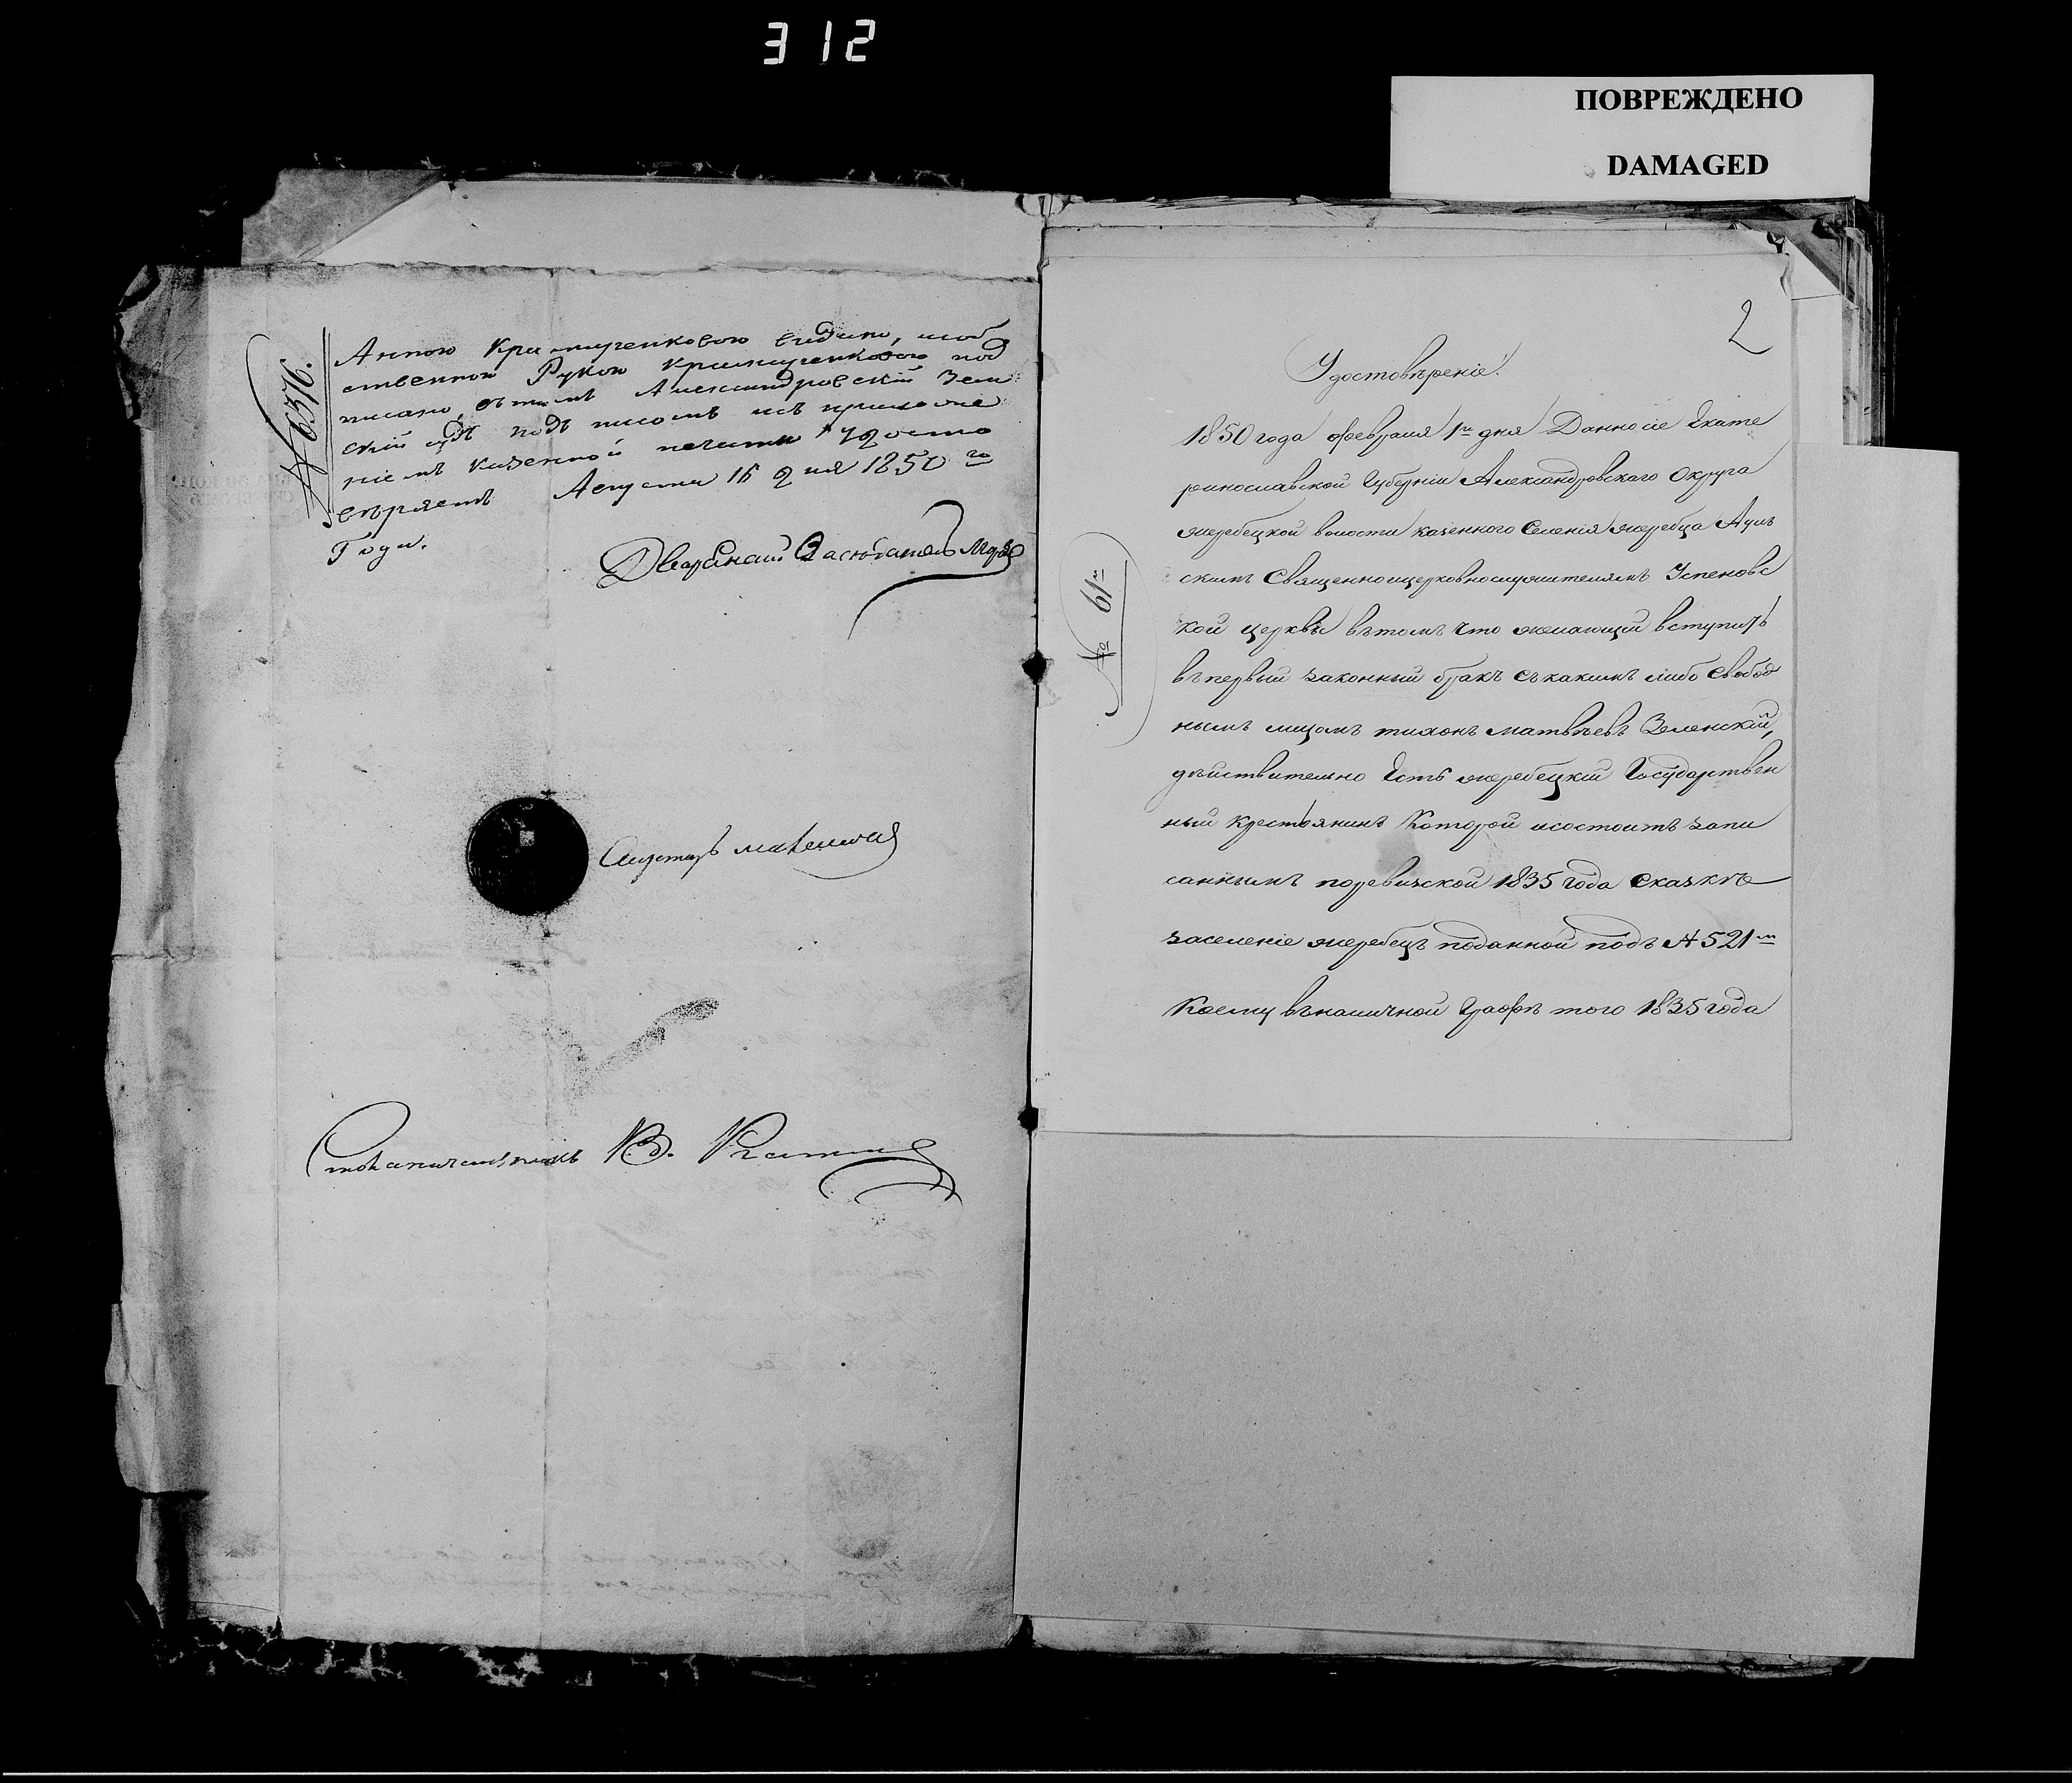 312
ПОВРЕЖДЕНО
DAMAGED
№ 6376.
Анною Кремзученковою выдано, исоб
ственною Рукою Кремзученковою под
писано, вътомъ Александровскій Зем
скій судъ подписомъ исъ приложе
ніемъ казенной печати удосто
веряетъ Августа 16 дня 1850 го
Года.
Дворянскій Заседатель
Секретарь
Столоначальникъ В.
2
Удостовѣреніе.
№ 61й
1850 года февраля 1го дня Данносіе Екате
ринославской Губерніи Александровскаго Округа
жеребецкой волости казенного Селенія жеребца
скимъ Священноицерковнослужителямъ Успеновс
кой церквы вътомъ что желающій вступить
въпервый законный бракъ съкакимъ либо Свобод
нымъ лицомъ тихонъ матвѣевъ Зеленскій,
дѣйствительно Есть жеребецкій Государствен
ный крестьянинъ Которой исостоитъ запи
саннымъ поревизской 1835 года Сказкѣ
заселеніе жеребецъ поданной подъ № 521м
Коему въналичной Графѣ того 1835 года